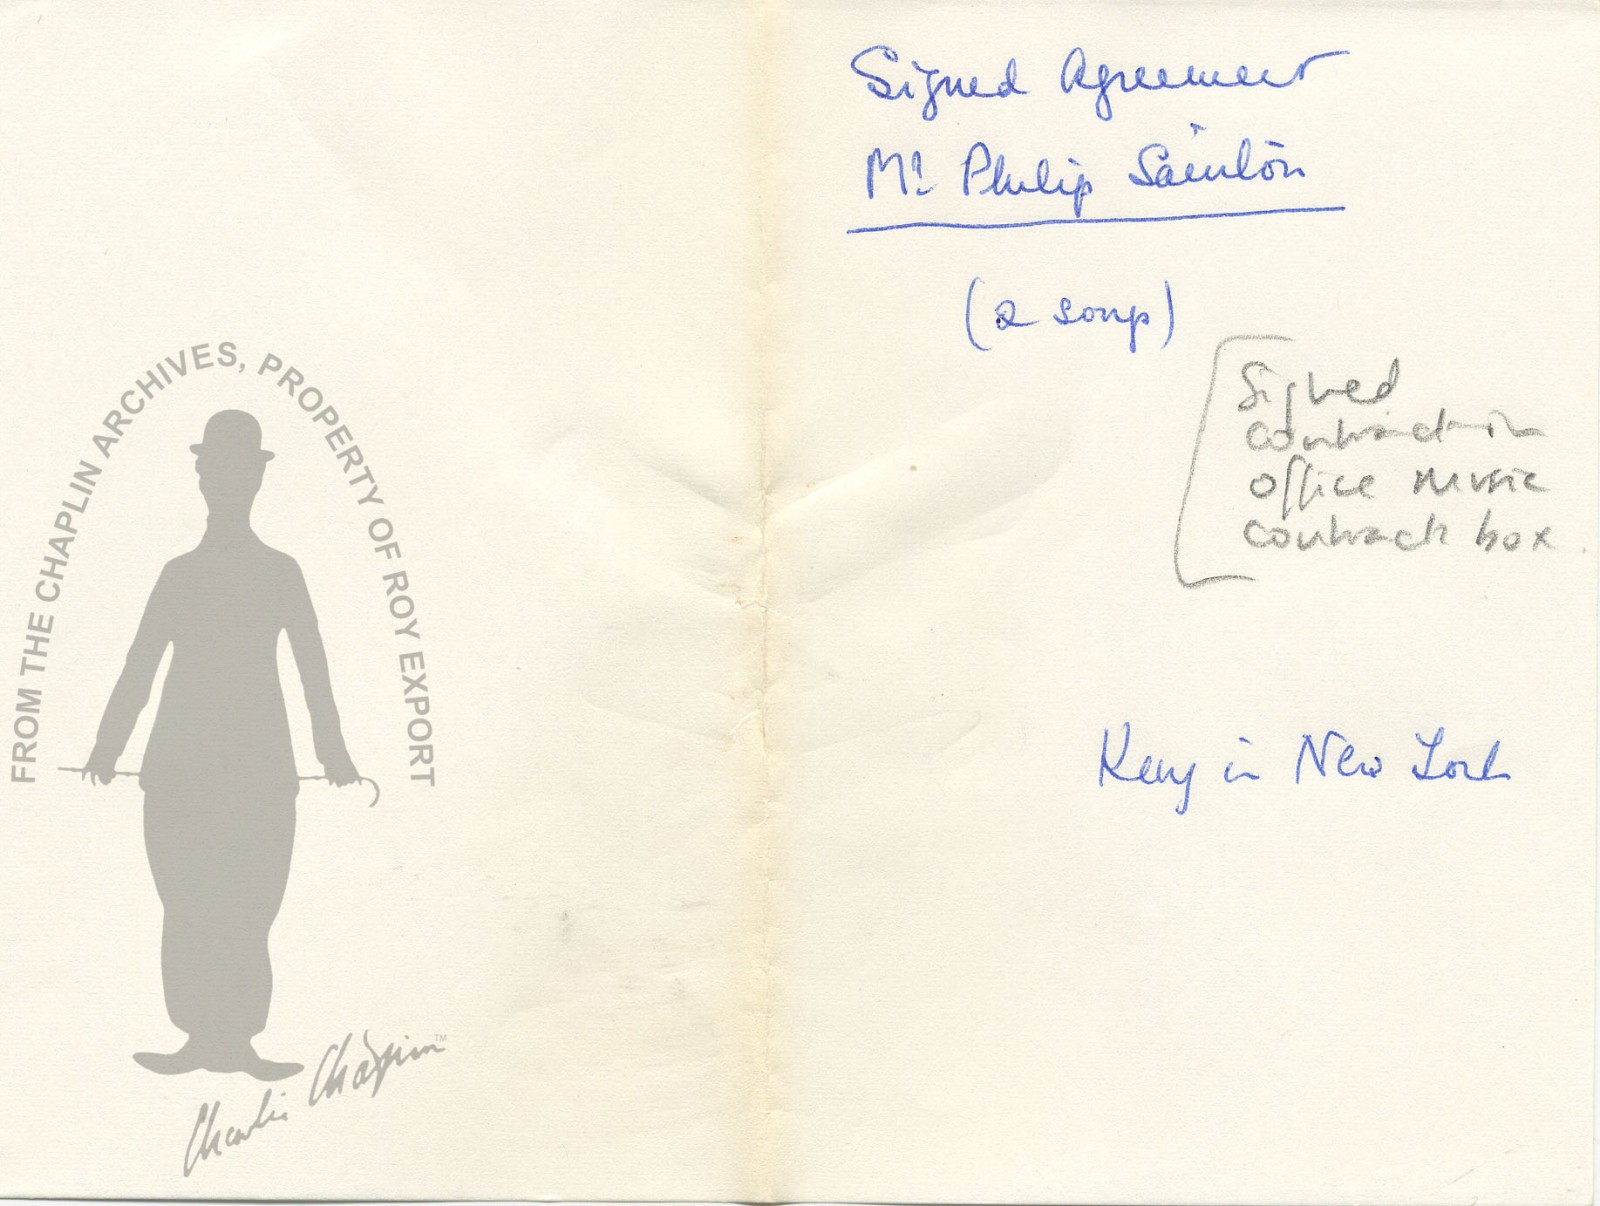 Signed Agreement
Mr Philip Sainton
(2 songs)
Signed
contract in
office music
contract box
in New York
FROM THE CHAPLIN ARCHIVES, PROPERTY OF ROY EXPORT
Charlie Chaplin™